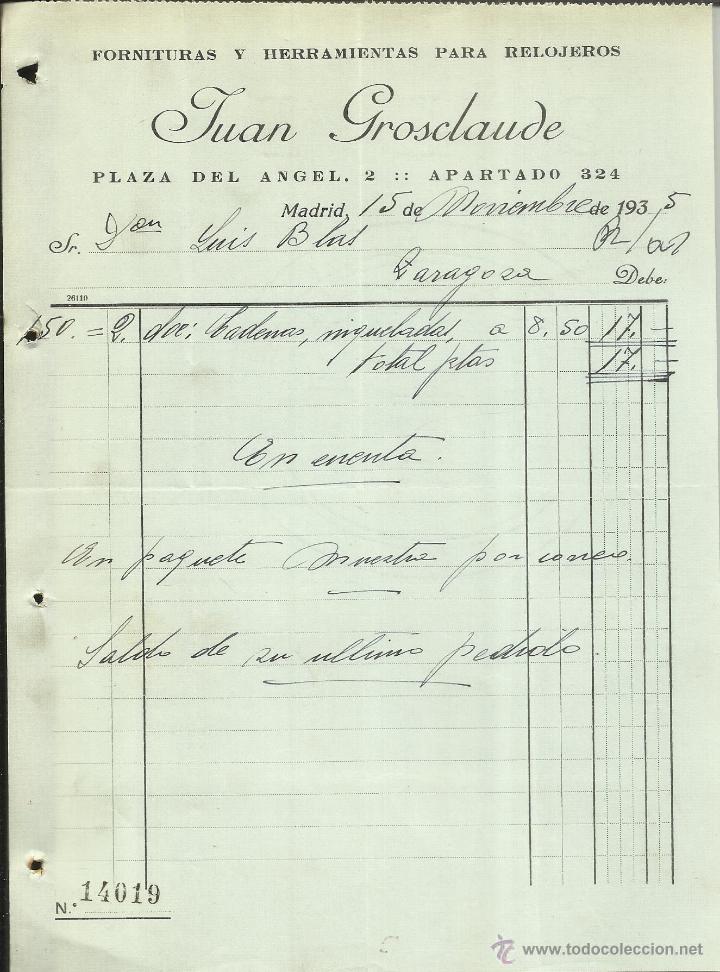 FORNITURAS Y HERRAMIENTAS PARA RELOJEROS
Juan Grosclaude
PLAZA DEL ANGEL. 2 :: APARTADO 324
Madrid, 15 de Noviembre de 1935
Sr. Don Luis Blas
Zaragoza Debe:
26110
150. = 2. doc: Cadenas, niqueladas, a 8.50 17.—
total ptas 17.—
En cuenta.
En paquete muestra por correo.
Saldo de su ultimo pedido.
N.° 14019
www.todocoleccion.net